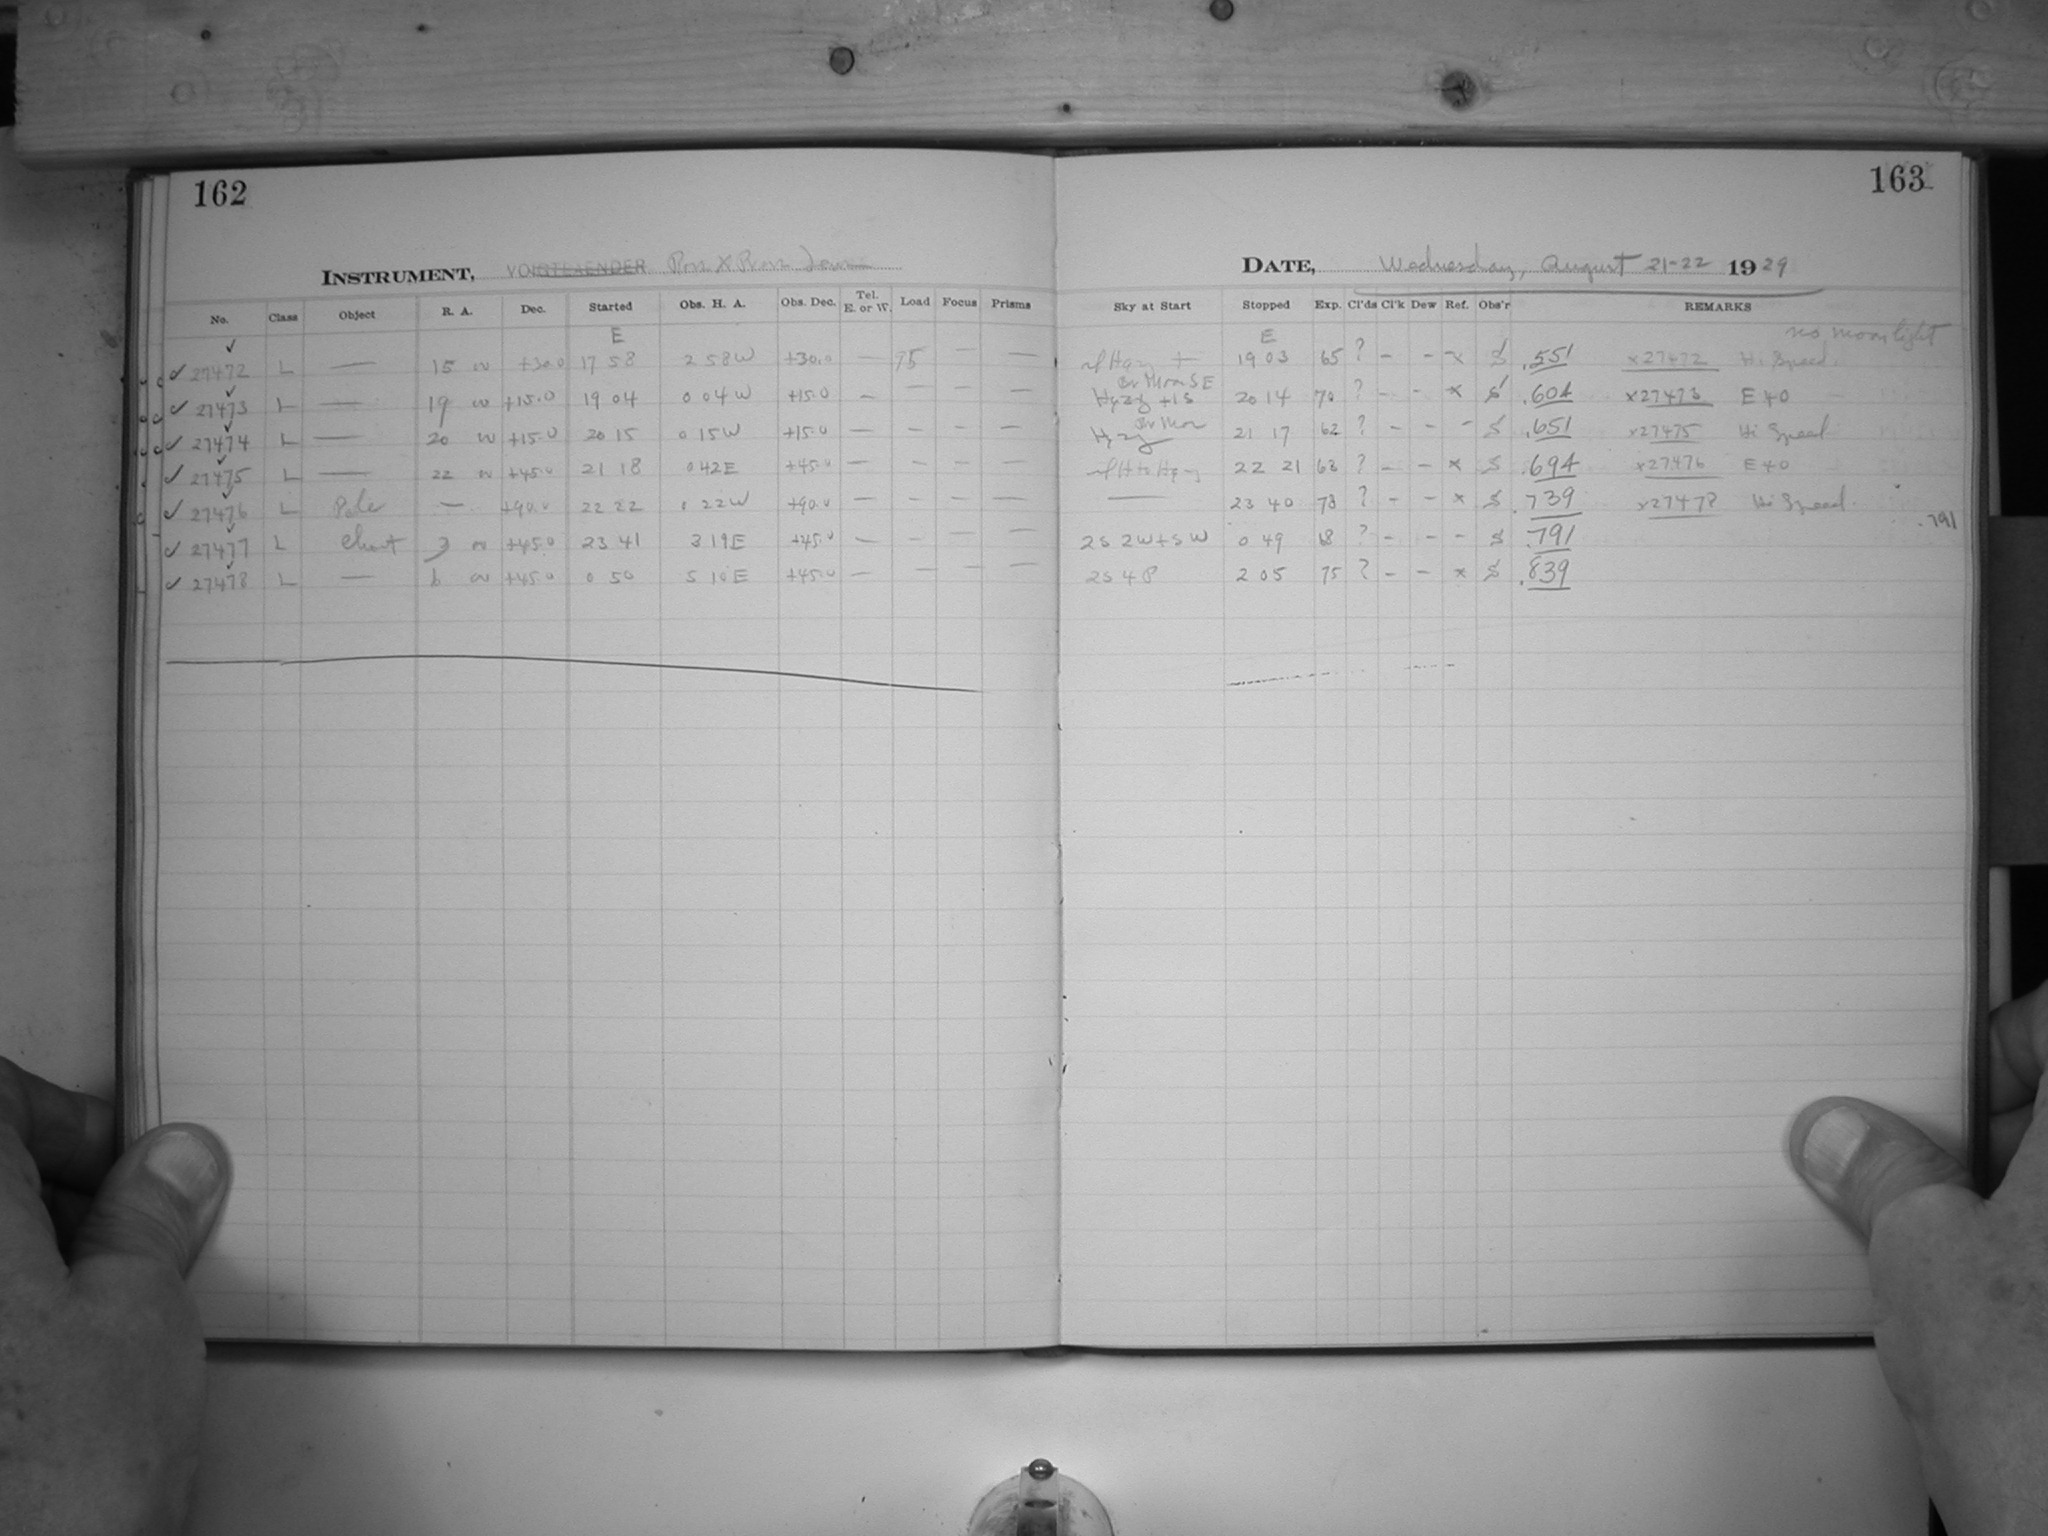 162
163
INSTRUMENT, VOIGTLAENDER Ross X Ross
DATE, Wednesday, August 21-22 1929
No. Class Object R. A. Dec. Started Obs. H. A. Obs. Dec. Tel. E. or W. Load Focus Prisms Sky at Start Stopped Exp. Cl'ds Cl'k Dew Ref. Obs'r REMARKS
E E no moonlight
✓ 27472 L — 15 +30.0 17 58 2 58W +30.0 — 95 — — 19 03 65 ? - - x S .551 x27472 Hi Speed.
✓ 27473 L — 19 +15.0 19 04 0 04W +15.0 — — — — Hazy +1S 20 14 70 ? - - x S .604 x27473 E40
✓ 27474 L — 20 +15.0 20 15 0 15W +15.0 — — — — Hazy 21 17 62 ? - - - S .651 x27475 Hi Speed
✓ 27475 L — 22 +45.0 21 18 0 42E +45.0 — — — — 22 21 63 ? - - x S .694 x27476 E40
✓ 27476 L Pole — +90.0 22 22 22W +90.0 — — — — — 23 40 78 ? - - x S .739 x27478 Hi Speed.
✓ 27477 L 3 +45.0 23 41 3 19E +45.0 — — — — 2S 2W+SW 0 49 68 ? - - - S .791 .791
✓ 27478 L — 6 +45.0 0 50 5 10E +45.0 — — — — 2S 4P 2 05 75 ? - - x S .839